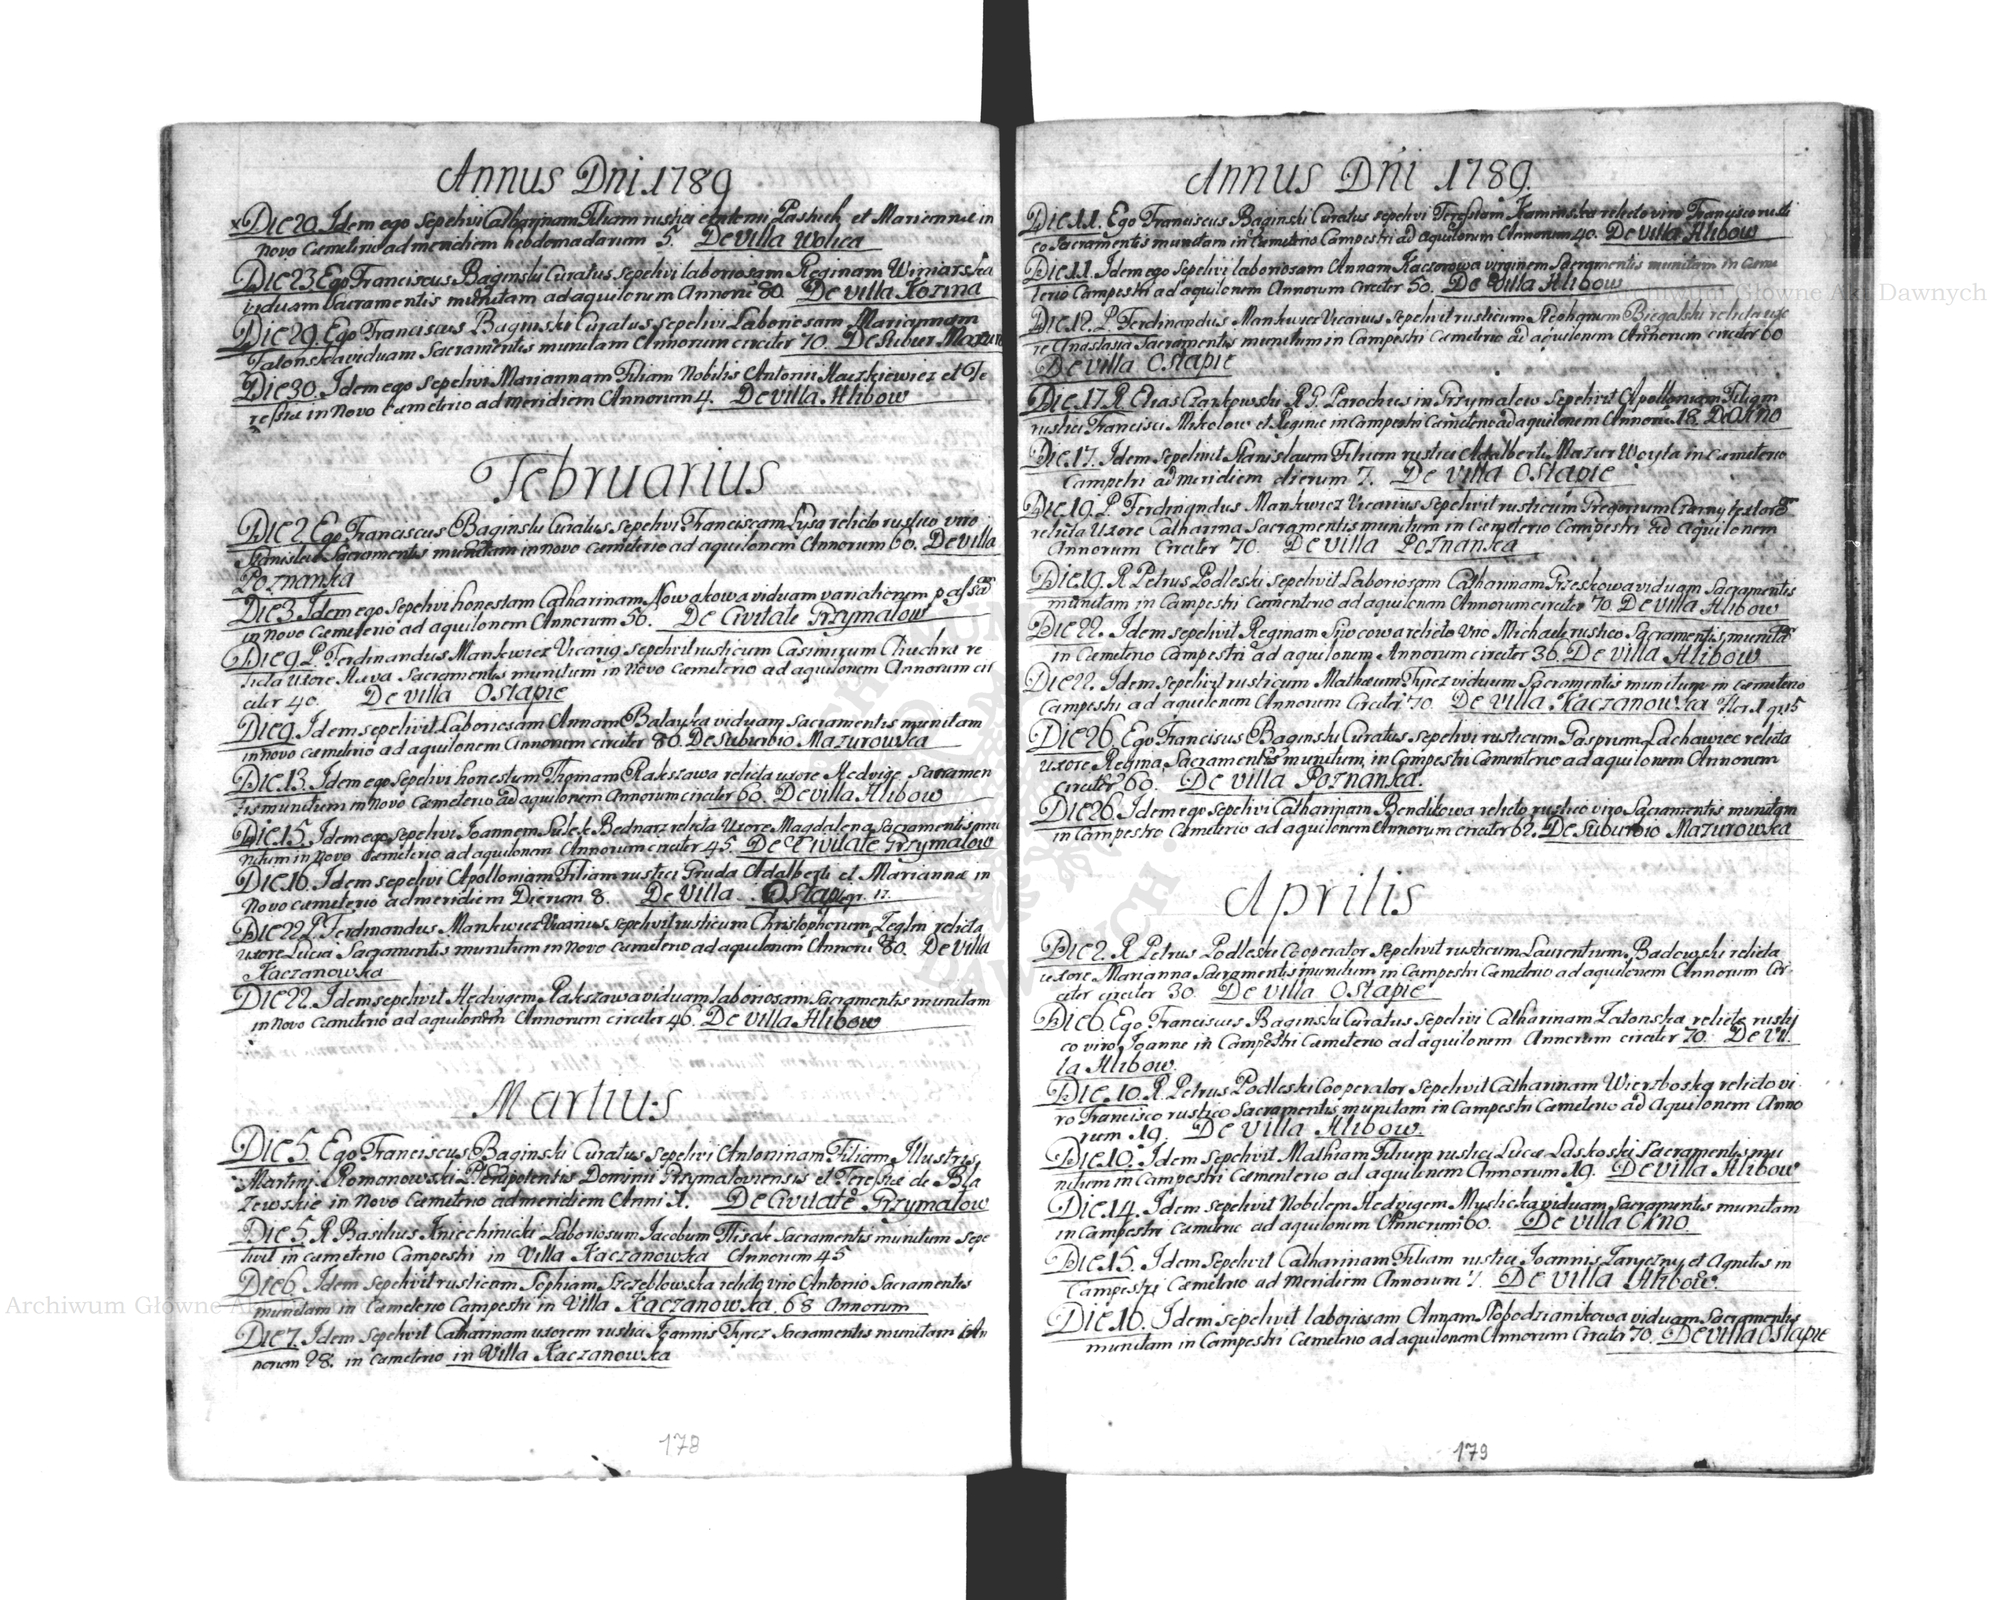 Annus Dni 1789
Die 20. Idem ego sepelivi Catharinam Filiam rustici Pastuch et Mariannæ in
novo cæmeterio ad meridiem hebdomadarum 5. De villa Wolica
Die 23 Ego Franciscus Baginski Curatus sepelivi laboriosam Reginam Winiarska
viduam Sacramentis munitam ad aquilonem Annorū 80. De villa Kozina
Die 29. Ego Franciscus Baginski Curatus sepelivi Laboriosam Mariannam
viduam Sacramentis munitam Annorum circiter 70. De Subur Mazur
Die 30. Idem ego sepelivi Mariannam Filiam Nobilis Antonii Maczkiewicz et Te
ressiæ in novo cæmeterio ad meridiem Annorum 4. De villa Hlibow
Februarius
Die 2. Ego Franciscus Baginski Curatus sepelivi Franciscam Lysa relicto rustico viro
Stanislao Sacramentis munitam in novo cæmeterio ad aquilonem Annorum 60. De villa
Poznanka
Die 3. Idem ego sepelivi honestam Catharinam Nowakowa viduam
in novo cæmeterio ad aquilonem Annorum 50. De Civitate Grzymalow
Die 9. P. Ferdinandus Mankwicz Vicariq sepelivit rusticum Casimirum re
licta uxore Sacramentis munitum in novo cæmeterio ad aquilonem Annorum cir
citer 40. De villa Ostapie
Die 9. Idem sepelivit Laboriosam Annam Balayka viduam Sacramentis munitam
in novo cæmeterio ad aquilonem Annorum circiter 80. De Suburbio Mazurowka
Die 13. Idem ego sepelivi honestum Thomam Rakszawa relicta uxore Hedvige Sacramen
tis munitum in novo cæmeterio ad aquilonem Annorum circiter 60. De villa Hlibow
Die 15. Idem ego sepelivi Joannem Sulek Bednarz relicta Uxore Magdalena Sacramentis mu
nitum in novo Cæmeterio ad aquilonem Annorum circiter 45. De Civitate Grzymalow
Die 16. Idem sepelivi Apolloniam Filiam rustici Gruda Adalberti et Mariannæ in
novo cæmeterio ad meridiem Dierum 8. De Villa Ostap gr. 17.
Die 22 P. Ferdinandus Mankwicz Vicarius sepelivit rusticum Christophorum relicta
uxore Lucia Sacramentis munitum in novo cæmeterio ad aquilonem Annorū 80. De villa
Kaczanowka
Die 22. Idem sepelivit Hedvigem Rakszawa viduam laboriosam Sacramentis munitam
in novo cæmeterio ad aquilonem Annorum circiter 46. De villa Hlibow
Martius
Die 5. Ego Franciscus Baginski Curatus sepelivi Antoninam Filiam Illustris
Martini Romanowski Plenipotentis Dominii Grzymaloviensis et Teressiæ de Bla
zewskie in novo Cæmeterio ad meridiem Anni 1. De Civitate Grzymalow
Die 5. R. Basilius Kniechinicki Laboriosum Jacobum Sacramentis munitum sepe
livit in cæmeterio Campestri in Villa Kaczanowka Annorum 45
Die 6. Idem sepelivit rusticam Sophiam Szczeblowska relicto viro Antonio Sacramentis
munitam in Cæmeterio Campestri in Villa Kaczanowka. 68 Annorum
Die 7. Idem sepelivit Catharinam uxorem rustici Joannis Tyrcz Sacramentis munitam An
norum 28. in cæmeterio in Villa Kaczanowka
178
Annus Dni 1789.
Die 11. Ego Franciscus Baginski Curatus sepelivi Teressiam Kaminska relicto viro Francisco rusti
co Sacramentis munitam in Cæmeterio Campestri ad aquilonem Annorum 40. De villa Hlibow
Die 11. Idem ego sepelivi laboriosam Annam Kaczorowa virginem Sacramentis munitam in cæme
terio Campestri ad aquilonem Annorum Circiter 50. De Villa Hlibow
Die 12. P. Ferdinandus Mankwicz Vicarius sepelivit rusticum Stephanum Biegalski relicta uxo
re Anastasia Sacramentis munitum in Campestri Cæmeterio ad aquilonem Annorum circiter 60
De villa Ostapie
Die 17. R. Elias Czankowski R. G. Parochus in Grzymalow sepelivit Apolloniam Filiam
rustici Francisci Mikolow et Reginæ in Campestri Cæmeterio ad aquilonem Annorū 18. De Okno
Die 17. Idem sepelivit Stanislaum Filium rustici Adalberti Mazur Woyta in Cæmeterio
Campestri ad meridiem dierum 7. De villa Ostapie
Die 19. P. Ferdinandus Mankwicz Vicarius sepelivit rusticum Gregorium Czarny
relicta Uxore Catharina Sacramentis munitum in Cæmeterio Campestri ad aquilonem
Annorum Circiter 70. De villa Poznanka
Die 19. R. Petrus Podleski sepelivit Laboriosam Catharinam Grzeskowa viduam Sacramentis
munitam in Campestri Cæmenterio ad aquilonem Annorum circiter 70. De villa Hlibow
Die 22. Idem sepelivit Reginam Siwcowa relicto Viro Michaele rustico Sacramentis munitā
in Cæmeterio Campestri ad aquilonem Annorum circiter 36. De villa Hlibow
Die 22. Idem sepelivit rusticum Mathæum Tyrcz viduum Sacramentis munitum in cæmeterio
Campestri ad aquilonem Annorum Circiter 70. De Villa Kaczanowka
Die 26. Ego Franciscus Baginski Curatus sepelivi rusticum Gasprum Lachawiec relicta
uxore Regina Sacramentis munitum in Campestri Cæmenterio ad aquilonem Annorum
circiter 60. De villa Poznanka.
Die 26. Idem ego sepelivi Catharinam Bendikowa relicto rustico viro Sacramentis munitam
in Campestro Cæmeterio ad aquilonem Annorum circiter 62. De Suburbio Mazurowka
Aprilis
Die 2. R. Petrus Podleski Cooperator sepelivit rusticum Laurentium Badowski relicta
uxore Marianna Sacramentis munitum in Campestri Cæmeterio ad aquilonem Annorum Cir-
citer circiter 30. De villa Ostapie
Die 6. Ego Franciscus Baginski Curatus sepelivi Catharinam Zatonska relicto rusti
co viro Joanne in Campestri Cæmeterio ad aquilonem Annorum circiter 70. De Vil
la Hlibow.
Die 10. R. Petrus Podleski Cooperator sepelivit Catharinam Wierzboska relicto vi
ro Francisco rustico Sacramentis munitam in Campestri Cæmeterio ad Aquilonem Anno
rum 19. De Villa Hlibow.
Die 10. Idem sepelivit Mathiam Filium rustici Lucæ Laskoski Sacramentis mu
nitum in Campestri Cæmenterio ad aquilonem Annorum 19. De villa Hlibow
Die 14. Idem sepelivit Nobilem Hedvigem Myslicka viduam Sacramentis munitam
in Campestri Cæmeterio ad aquilonem Annorum 60. De villa Okno.
Die 15. Idem sepelivit Catharinam Filiam rustici Joannis et Agnetis in
Campestri Cæmeterio ad Meridiem Annorum De villa Hlibow.
Die 16. Idem sepelivit laboriosam Annam Slobodzianikowa viduam Sacramentis
munitam in Campestri Cæmeterio ad aquilonem Annorum Circiter 70. De villa Ostapie
179
Archiwum Główne Akt Dawnych